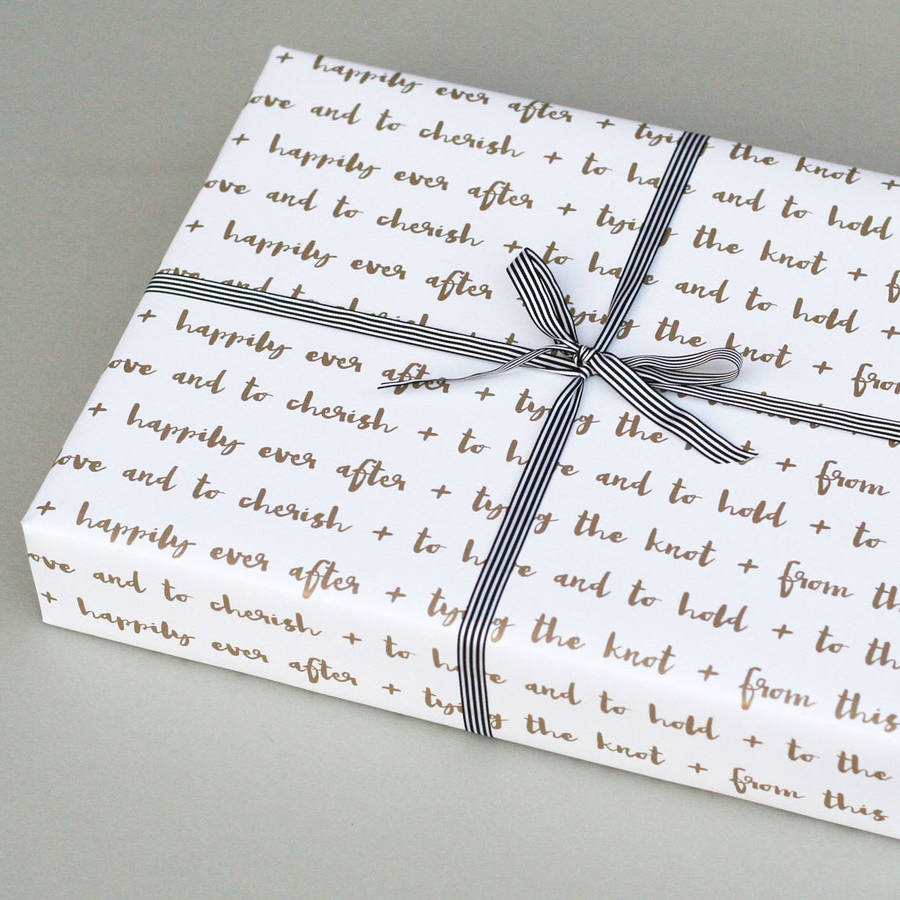 + happily ever after + tying the knot +
ove and to cherish + to have and to hold
+ happily ever after + tying the knot +
ove and to cherish + to have and to hold +
+ happily ever after + tying the knot + from
ove and to cherish +
+ happily ever after + tying the knot + from
ove and to cherish + to have and to hold + to
+ happily ever after + tying the knot + from
ove and to cherish + to have and to hold + to
+ happily ever after + tying the knot + from this
ove and to cherish + to have and to hold + to the
+ happily ever after + tying the knot + from this